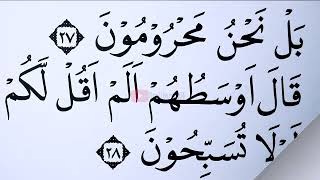 بَلْ نَحْنُ مَحْرُوْمُوْنَ ﴿٢٧﴾
قَالَ اَوْسَطُهُمْ اَلَمْ اَقُلْ لَّكُمْ
لَوْلَا تُسَبِّحُوْنَ ﴿٢٨﴾